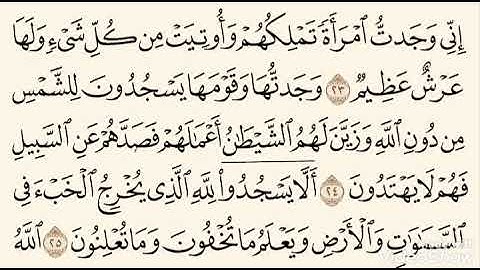 إِنِّى وَجَدتُّ ٱمْرَأَةً تَمْلِكُهُمْ وَأُوتِيَتْ مِن كُلِّ شَىْءٍ وَلَهَا
عَرْشٌ عَظِيمٌ ٢٣ وَجَدتُّهَا وَقَوْمَهَا يَسْجُدُونَ لِلشَّمْسِ
مِن دُونِ ٱللَّهِ وَزَيَّنَ لَهُمُ ٱلشَّيْطَٰنُ أَعْمَٰلَهُمْ فَصَدَّهُمْ عَنِ ٱلسَّبِيلِ
فَهُمْ لَا يَهْتَدُونَ ٢٤ أَلَّا يَسْجُدُوا۟ لِلَّهِ ٱلَّذِى يُخْرِجُ ٱلْخَبْءَ فِى
ٱلسَّمَٰوَٰتِ وَٱلْأَرْضِ وَيَعْلَمُ مَا تُخْفُونَ وَمَا تُعْلِنُونَ ٢٥ ٱللَّهُ